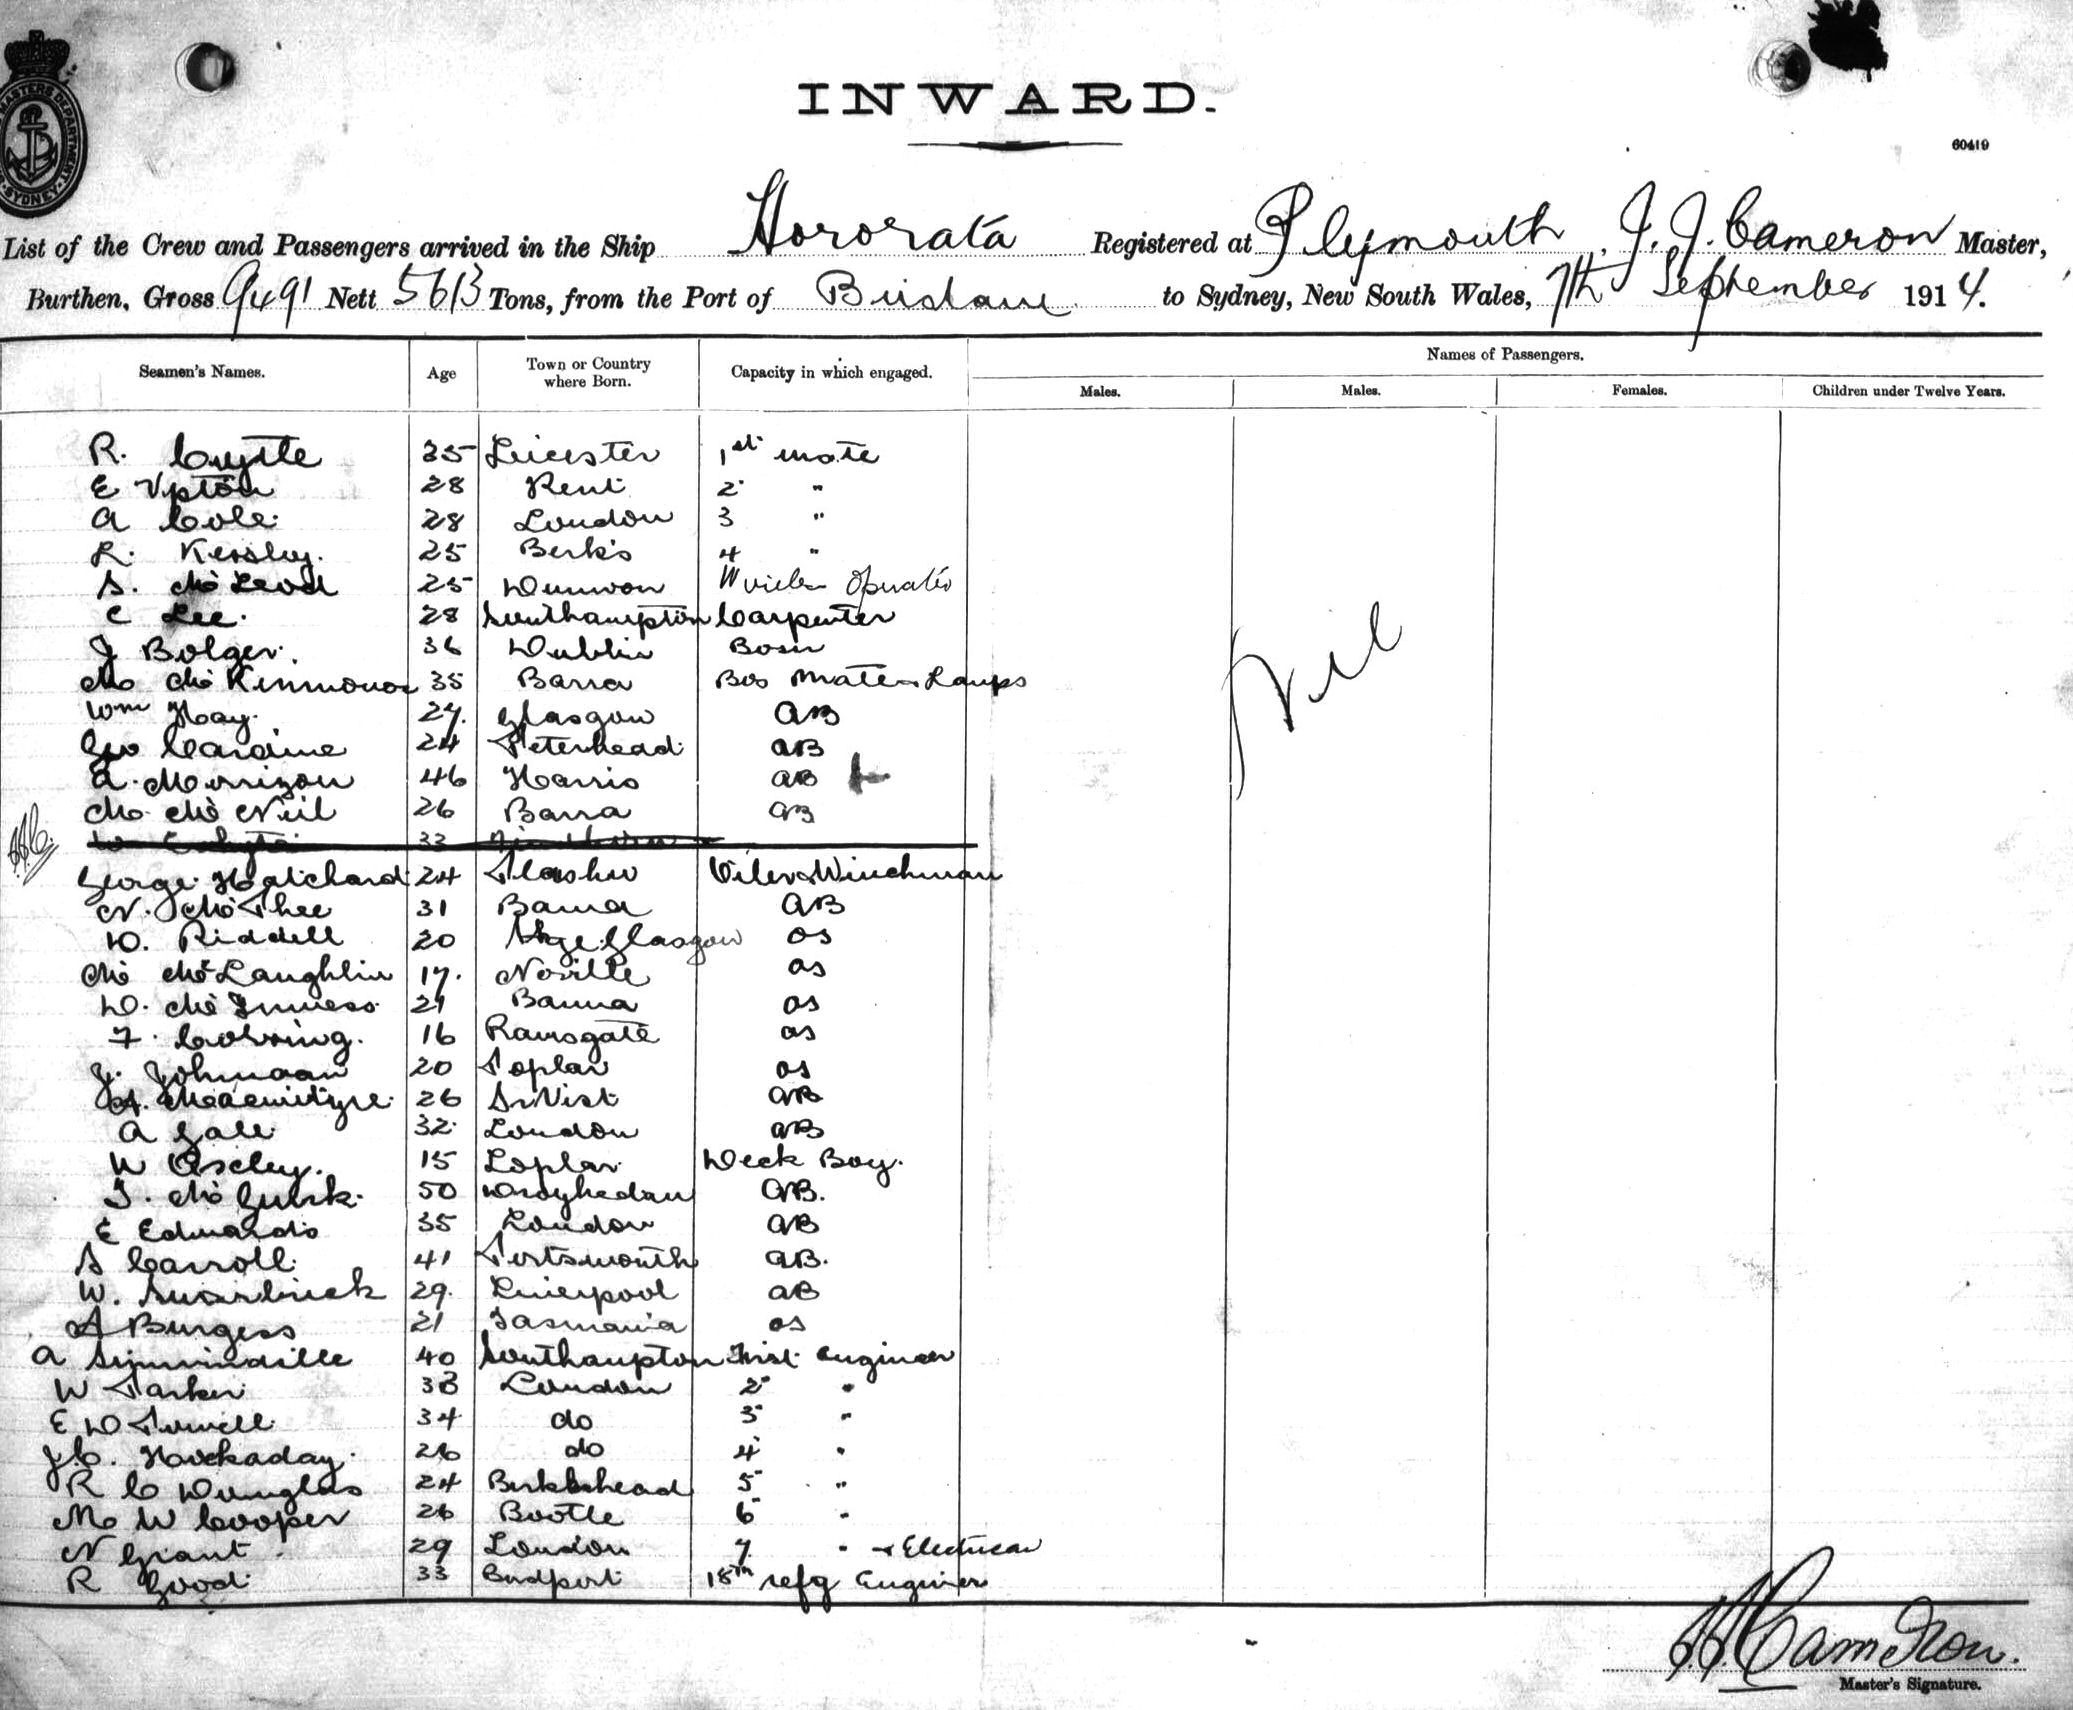 MASTERS DEPARTMENT SYDNEY
INWARD.
60419
List of the Crew and Passengers arrived in the Ship Hororata Registered at Plymouth, J. J. Cameron Master,
Burthen, Gross 9491 Nett 5613 Tons, from the Port of Brisbane to Sydney, New South Wales, 7th September 1914.
Seamen's Names. Age Town or Country where Born. Capacity in which engaged. Names of Passengers.
Males. Males. Females. Children under Twelve Years.
R. 35 Leicester 1st mate
E Upton 28 Kent 2 "
A Cole 28 London 3 "
R. Kersley. 25 Berks 4 "
S. McLeod 25 Dunoon Wireless Operator
C Lee. 28 Southampton Carpenter
J Bolger. 36 Dublin Bosn
M McKinnon 35 Barra Bos Mate & Lamps
Wm Hay. 27. Glasgow AB
Geo Cardine 24 Peterhead AB
A. Morrizon 46 Harris AB
M. McNeil 26 Barra AB
33
George Hatchard 24 Oiler & Winchman
N. McPhee 31 Barra AB
D. Riddell 20 Glasgow OS
M McLaughlin 17. OS
D. McInness 21 Barra OS
F. 16 Ramsgate OS
J. Johnson 20 Poplar OS
A. 26 AB
A Gale 32 London AB
W 15 Poplar Deck Boy.
J. McGurk. 50 AB.
E Edwards 35 London AB
S Carroll 41 Portsmouth AB.
W. Swarbrick 29. Liverpool AB
A Burgess 21 Tasmania OS
A 40 Southampton First Engineer
W Parker 38 London 2 "
E D Powell 34 do 3 "
J.C. Hockaday. 26 do 4 "
R C Douglas 24 Birkenhead 5 "
M W Cooper 26 Bootle 6 "
N Grant 29 London 7 " & Electrician
R Good 33 Bridport refg Engineer
Nil
J. J. Cameron.
Master's Signature.